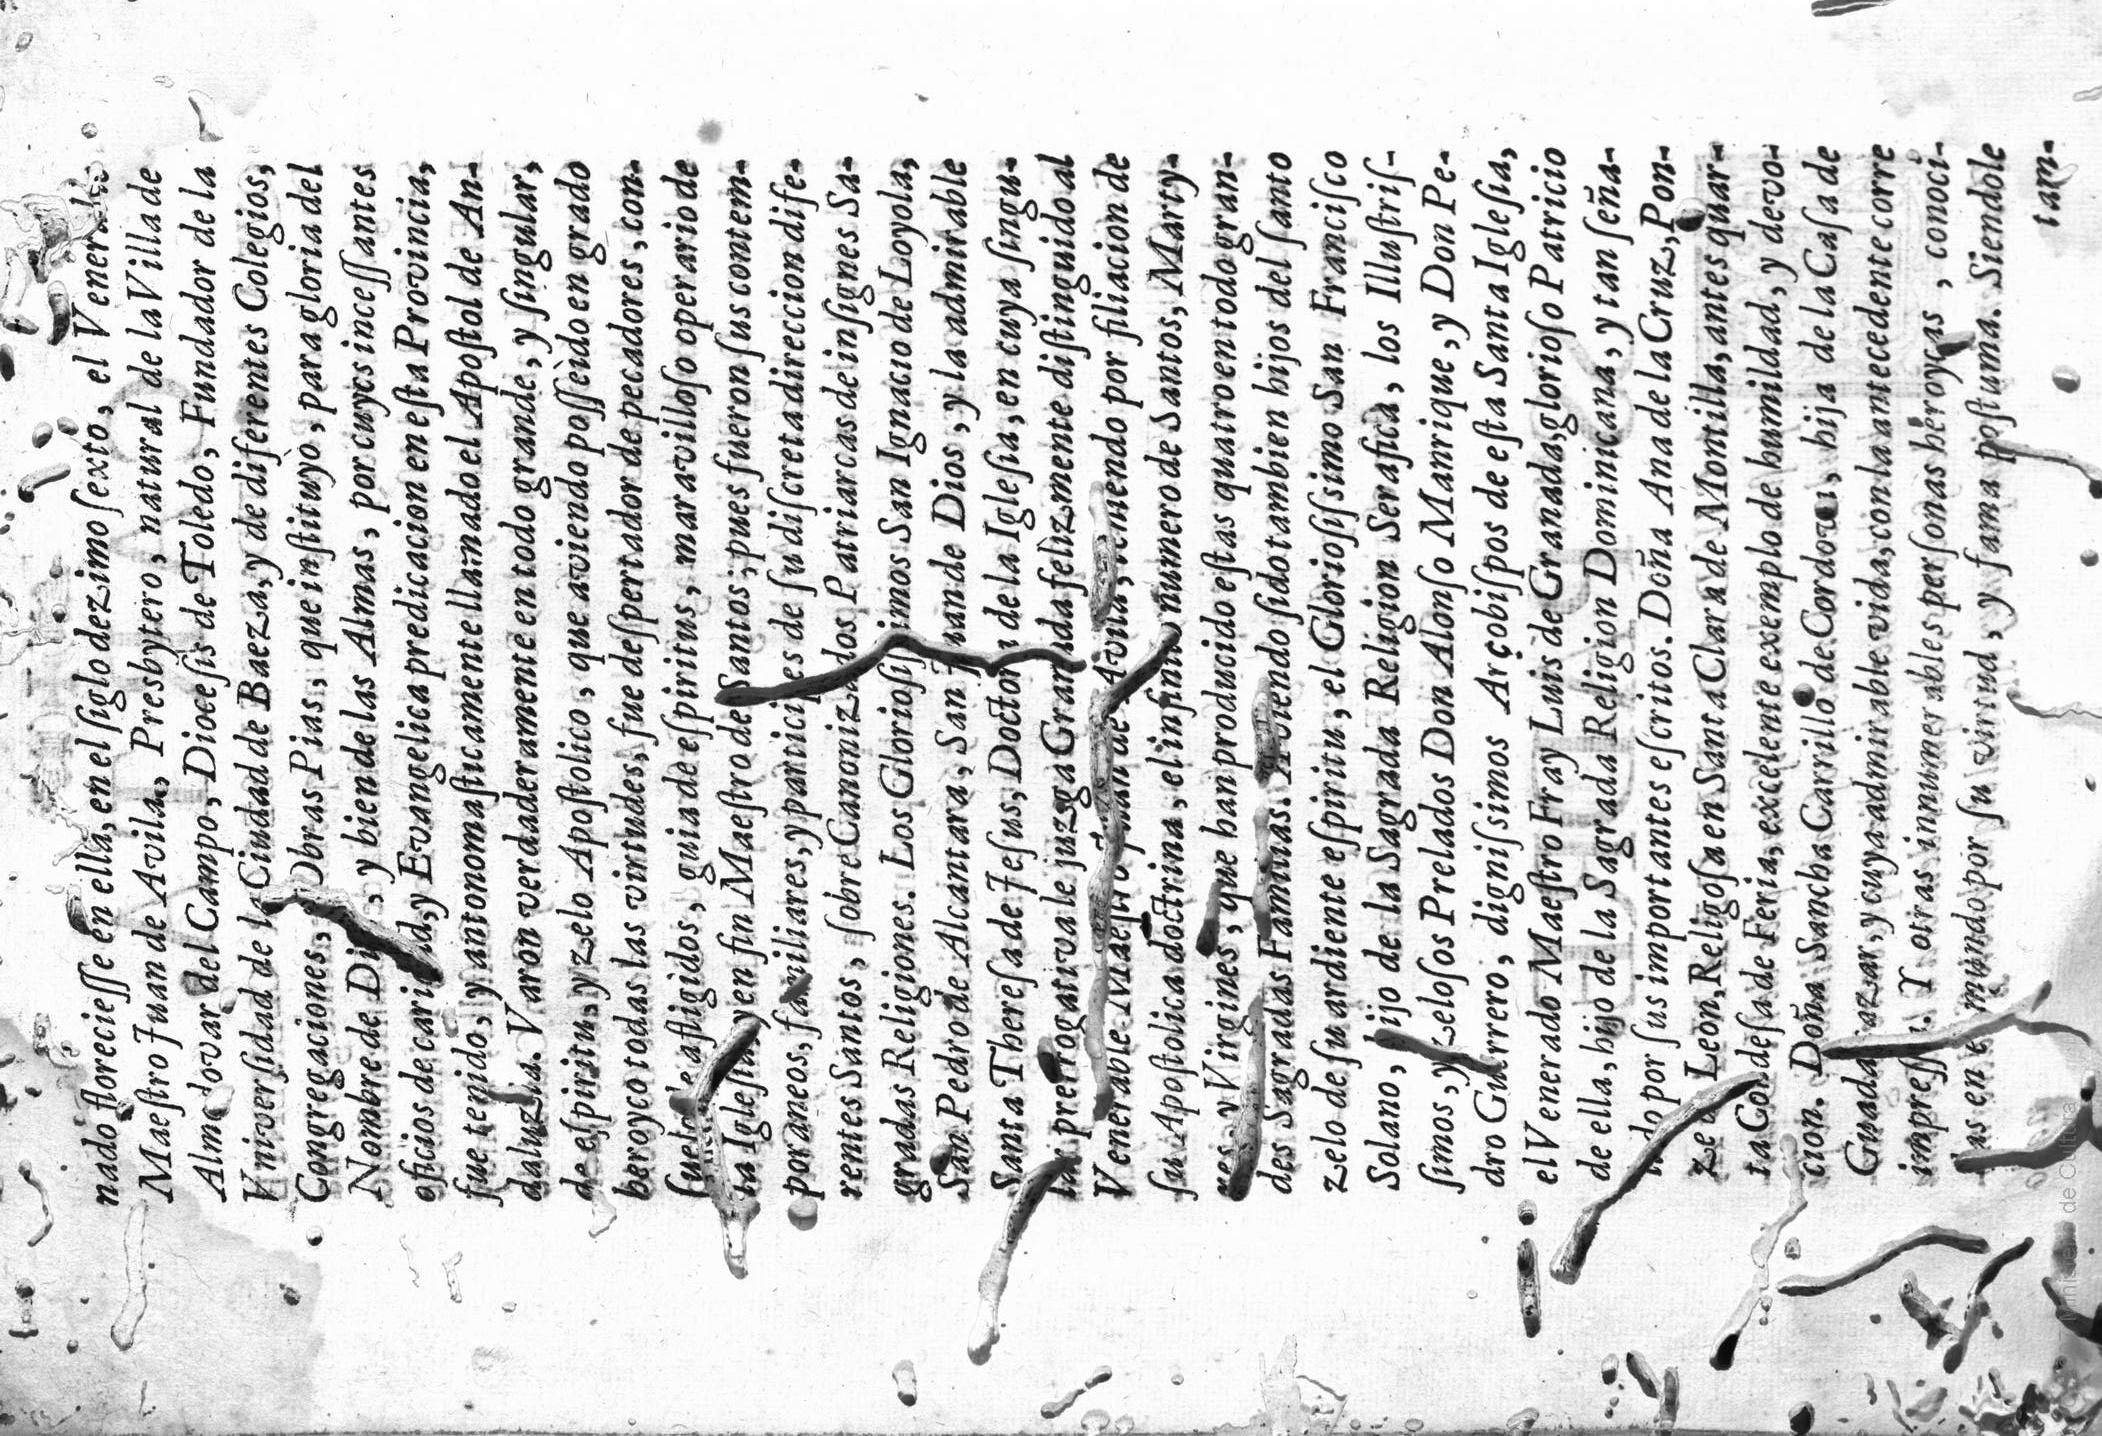 nado floreciesse en ella, en el siglo dezimo sexto, el Venerable
Maestro Juan de Avila, Presbytero, natural de la Villa de
Almodovar del Campo, Diocesis de Toledo, Fundador de la
Vniversidad de la Ciudad de Baeza, y de diferentes Colegios,
Congregaciones, Obras Pias, que instituyò, para gloria del
Nombre de Di , y bien de las Almas, por cuyos incessantes
oficios de cari d, y Evangelica predicacion en esta Provincia,
fue tenido, y antonomasticamente llamado el Apostol de An-
daluzia. Varon verdaderamente en todo grande, y singular,
de espiritu, y zelo Apostolico, que aviendo possèido en grado
heroyco todas las virtudes, fue despertador de pecadores, con-
suelo de afligidos, guia de espiritus, maravilloso operario de
la Iglesia, y en fin Maestro de Santos; pues fueron sus contem-
poraneos, familiares, y participes de su discreta direccion dife-
rentes Santos, sobre Canonizados Patriarcas de insignes Sa-
gradas Religiones. Los Gloriosissimos San Ignacio de Loyola,
San Pedro de Alcantara, San Juan de Dios, y la admirable
Santa Theresa de Jesus, Doctora de la Iglesia, en cuya singu-
lar prerrogativa le juzga Granada felizmente distinguido al
Venerable Maestro Juan de Avila, teniendo por filiacion de
su Apostolica doctrina, el infinito numero de Santos, Marty-
res, y Virgines, que han producido estas quatro en todo gran-
des Sagradas Familias. Aviendo sido tambien hijos del santo
zelo de su ardiente espiritu, el Gloriosissimo San Francisco
Solano, hijo de la Sagrada Religion Serafica, los Illustris-
simos, y zelosos Prelados Don Alonso Manrique, y Don Pe-
dro Guerrero, dignissimos Arçobispos de esta Santa Iglesia,
el Venerado Maestro Fray Luis de Granada, glorioso Patricio
de ella, hijo de la Sagrada Religion Dominicana, y tan seña-
lado por sus importantes escritos. Doña Ana de la Cruz, Pon-
ze de Leon, Religosa en Santa Clara de Montilla, antes quar-
ta Condesa de Feria, excelente exemplo de humildad, y devo-
cion. Doña Sancha Carrillo de Cordova, hija de la Casa de
Guadalcazar, y cuya admirable vida, con la antecedente corre
impressa. Y otras innumerables personas heroycas, conoci-
das en el mundo por su virtud, y fama postuma. Siendole
tam-